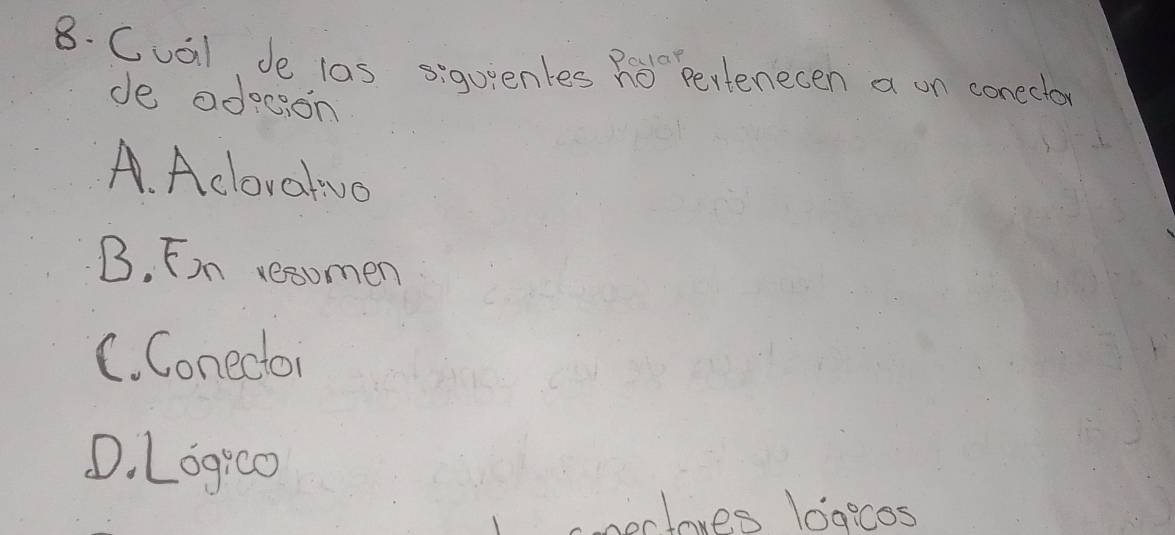 8. Cuál de las siguientes Palar no pertenecen a un conector
de adición
A. Aclorativo
B. En resumen
C. Conector
D. Lógico
conectores lógicos